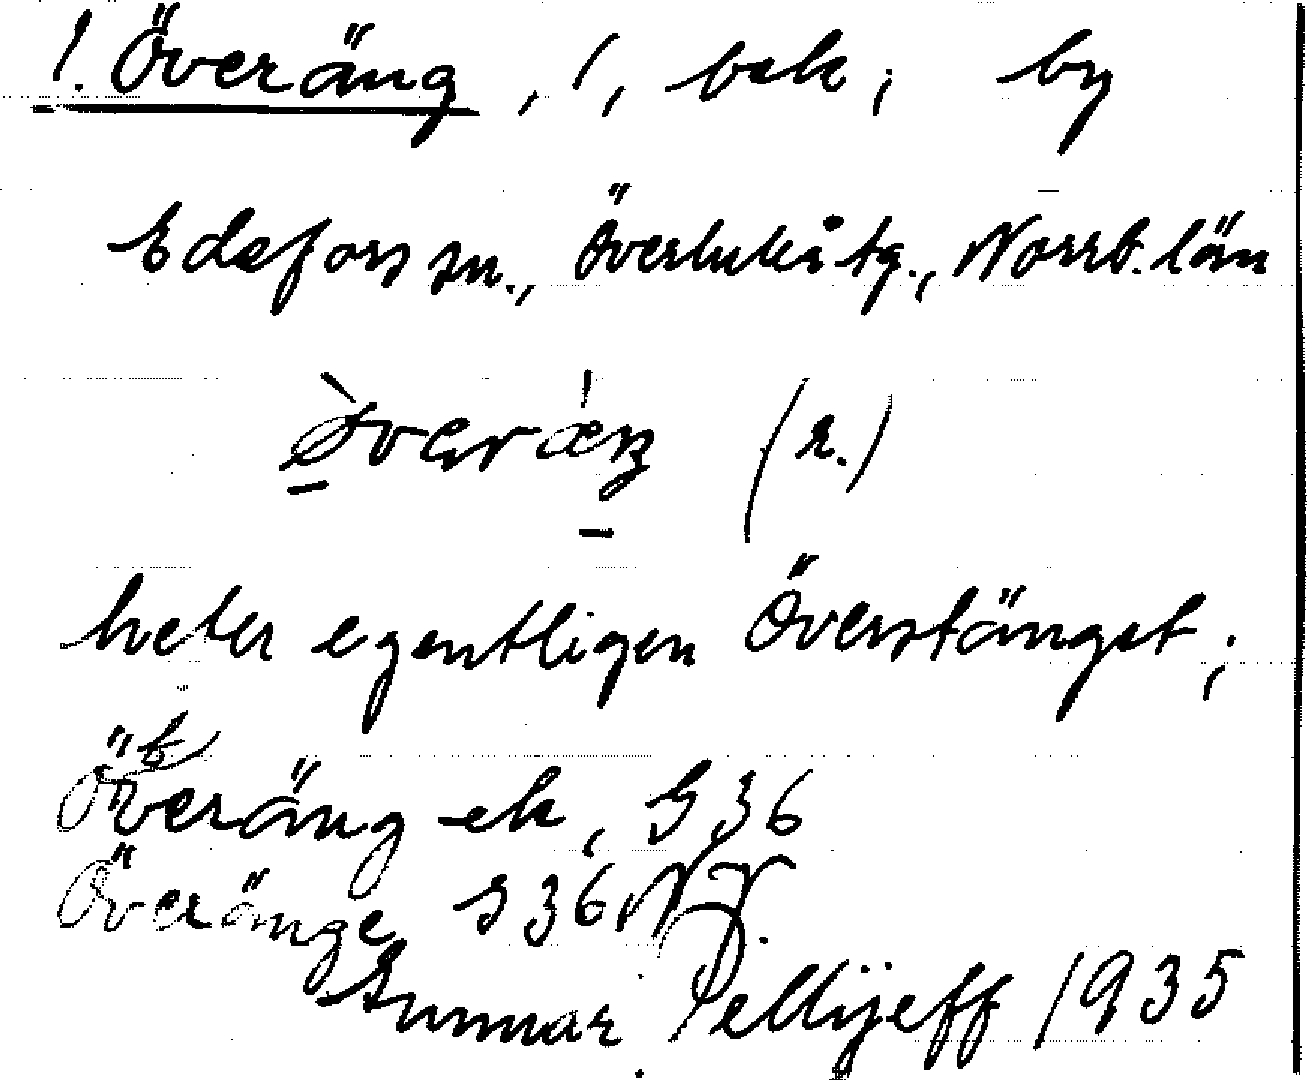 1. Överäng, 1, bek, by
Edefors sn., Överluleå tg., Norrb. län
(r.)
heter egentligen Överstänget;
Överäng ek, G36
Överänge S36NV.
Gunnar Pellijeff 1935